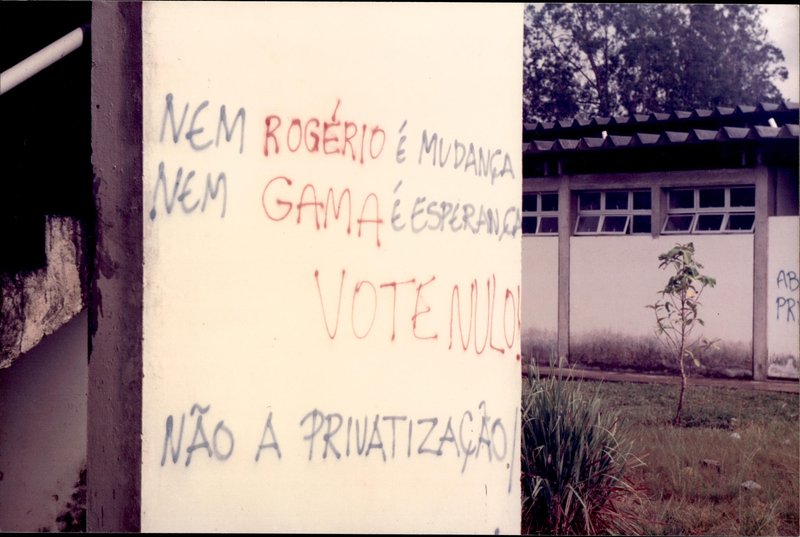 NEM ROGÉRIO É MUDANÇA
NEM GAMA É ESPERANÇA
VOTE NULO!
NÃO A PRIVATIZAÇÃO!
AB
PRI